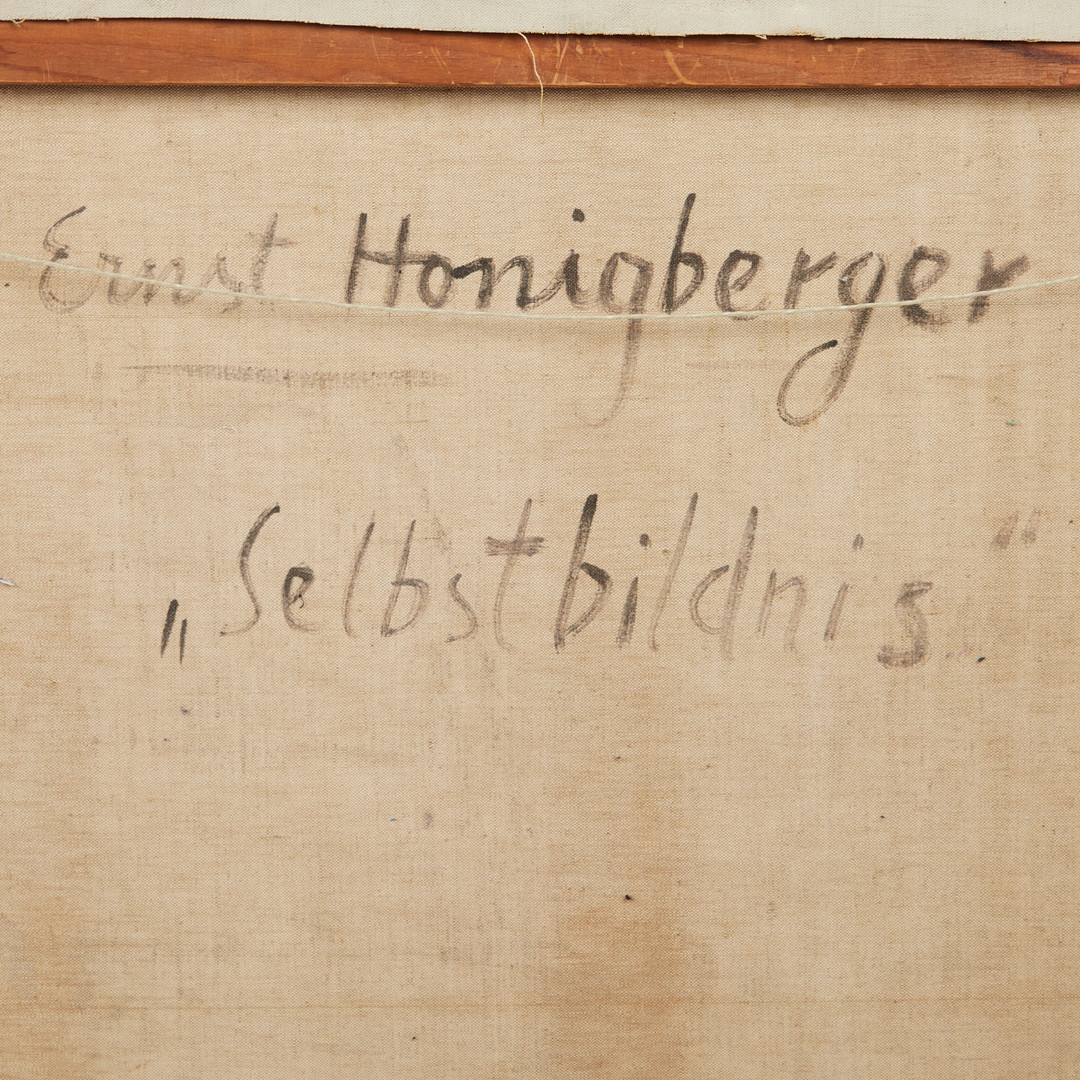 Ernst Honigberger
„Selbstbildnis“